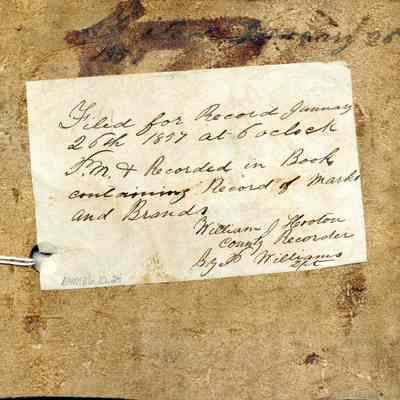 January 26
Filed for Record January
26th 1857 at 6 oclock
P.M. & Recorded in Book
containing Record of Marks
and Brands
William J Hooton
County Recorder
By Williams